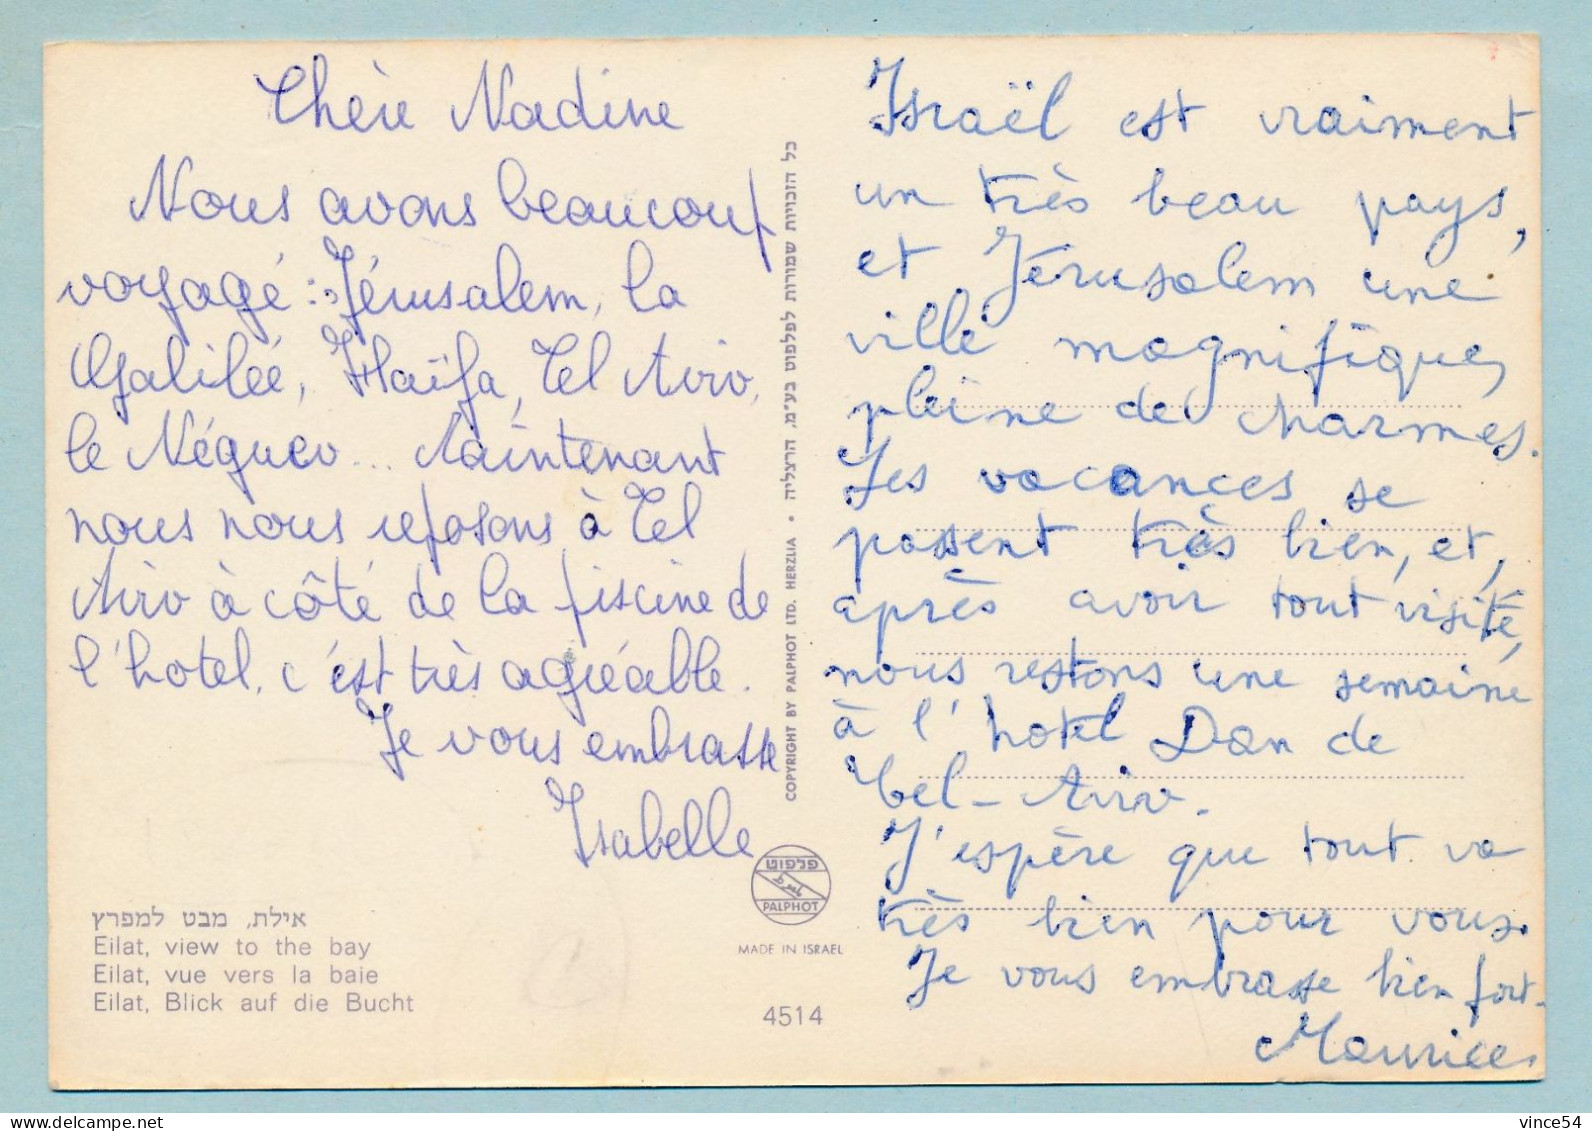 Chère Nadine
Nous avons beaucoup
voyagé : Jérusalem, la
Galilée, Haïfa, Tel Aviv,
le Néguev... Maintenant
nous nous reposons à Tel
Aviv à côté de la piscine de
l'hotel. c'est très agréable.
Je vous embrasse
Isabelle
אילת, מבט למפרץ
Eilat, view to the bay
Eilat, vue vers la baie
Eilat, Blick auf die Bucht
כל הזכויות שמורות לפלפוט בע"מ, הרצליה • COPYRIGHT BY PALPHOT LTD. HERZLIA
פלפוט
PALPHOT
MADE IN ISRAEL
4514
Israël est vraiment
un très beau pays,
et Jérusalem une
ville magnifique,
pleine de charmes.
Les vacances se
passent très bien, et,
après avoir tout visité,
nous restons une semaine
à l'hotel Dan de
Tel-Aviv.
J'espère que tout va
très bien pour vous.
Je vous embrasse bien fort.
Maurice
vince54